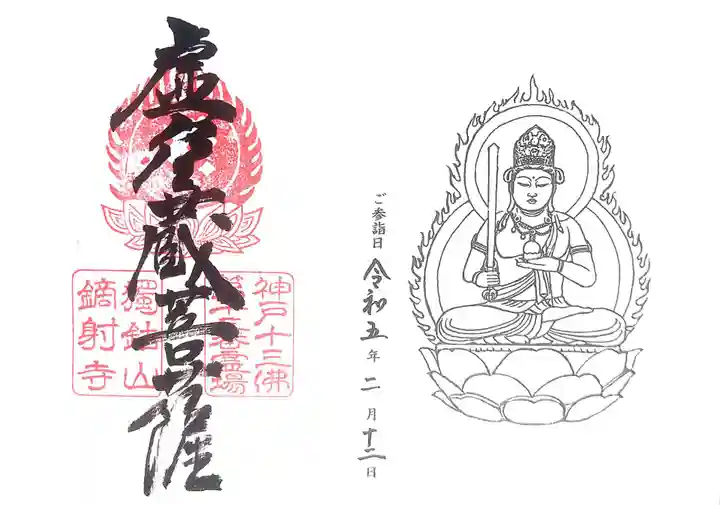 ご参詣日 令和五年二月十二日
虚空蔵菩薩
神戸十三佛
獨鈷山
鏑射寺